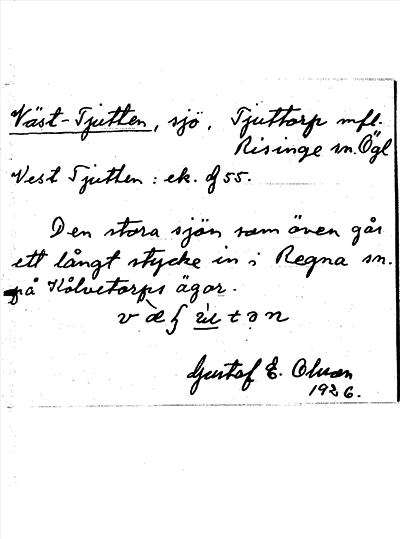 Väst-Tjutten, sjö, Tjuttorp mfl.
Risinge sn. Ögl
Vest Tjutten: ek. 55.
Den stora sjön som även går
ett långt stycke in i Regna sn.
på Kolvetorps ägor.
Gustaf E. Olson
1926.